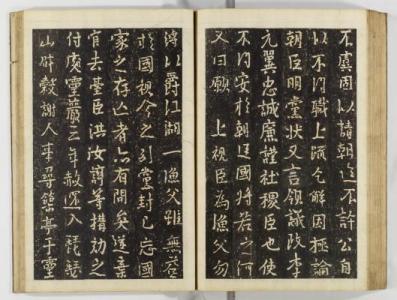 不固以請朝廷不許公自
以不職上疏乞解因極論
朝臣朋黨狀又言領議政李
元翼忠誠廉謹社稷臣也使
不安於朝廷國將若之何
又曰願上視臣為漁父勿
以爵江湖一漁父雖無益
於國視今之引黨封己忘國
家之存亡者亦有間矣遂棄
官去臺臣洪汝諄等搆劾之
付處靈巖三年赦還入琵琶
山辟穀謝人事尋築亭于靈